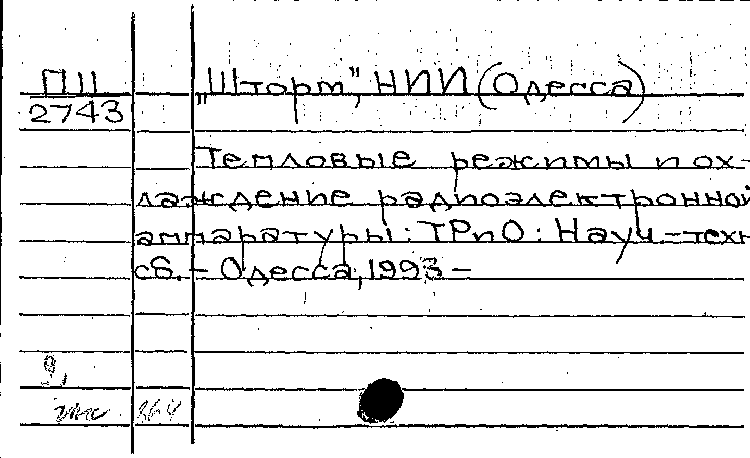 П11 „Шторм", НИИ (Одесса)
2743
Тепловые режимы и ох-
лаждение радиоэлектронной
аппаратуры: ТРиО: Науч.-техн
сб. – Одесса, 1993 –
9,
364